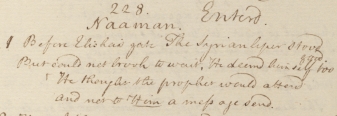 228.
Naaman. Enterd.
1 Before Elisha's gate The Syrian leper stood
But could not brook to wait, He deem'd himself too good
He thought the prophet would attend
and not to Him a message send.